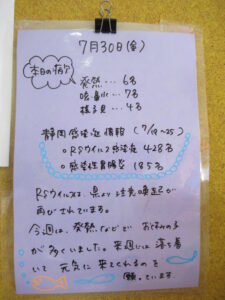 7月30日(金)
本日の病欠
発熱… 6名
咳鼻水… 7名
様子見… 4名
静岡感染症情報 (7/19~25)
○RSウイルス感染症 428名
○感染性胃腸炎 185名
RSウイルスは、県より注意喚起が
再びされています。
今週は、発熱などで お休みの子
が多くいました。来週には落ち着
いて 元気に来てくれるのを
願っています。